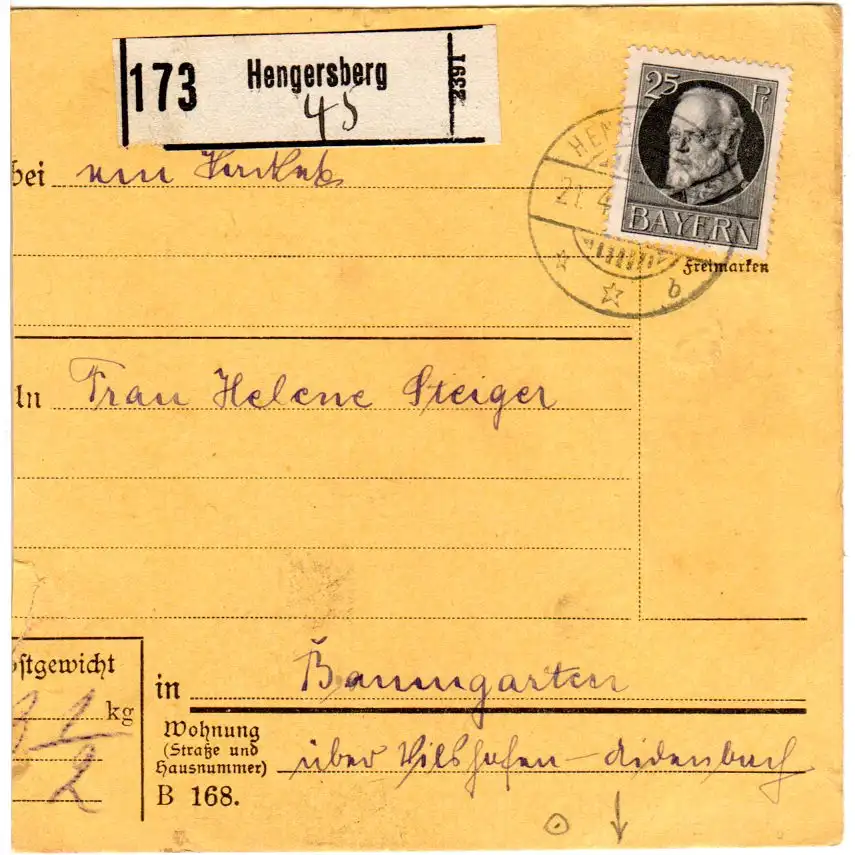 173 Hengersberg 2391
45
25 Pf
BAYERN
HEN
21. 4
b
Freimarken
bei
An Frau Helene Steiger
stgewicht
kg
1
2
in Baumgarten
Wohnung
(Straße und
Hausnummer)
über Vilshofen - Aidenbach
B 168.